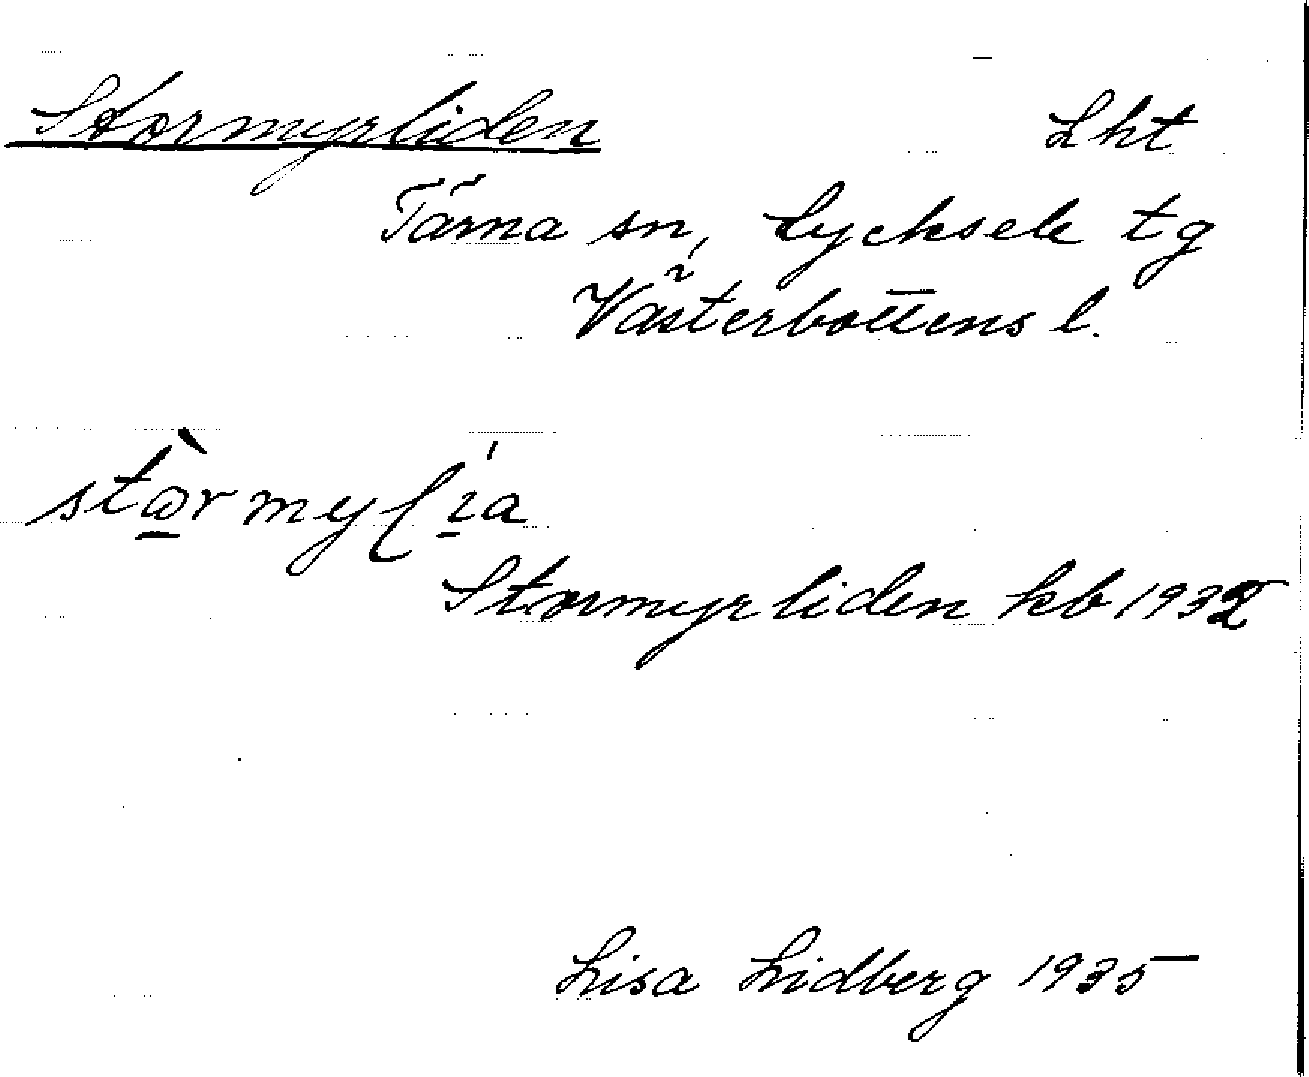 Stormyrliden Lht
Tärna sn, Lycksele tg
Västerbottens l.
Stormyrliden kb 1932
Lisa Lidberg 1935